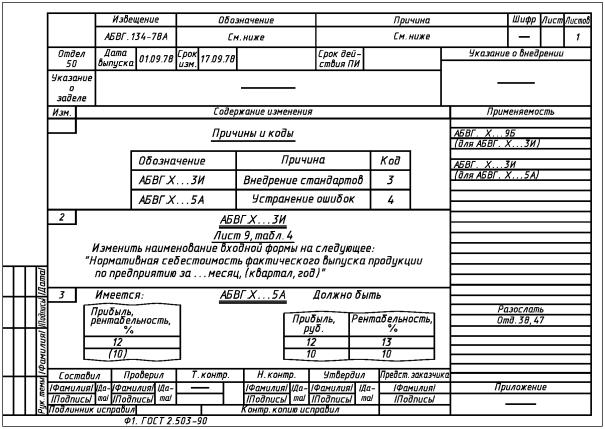 Извещение Обозначение Причина Шифр Лист Листов
АБВГ.134-78А См.ниже См.ниже — 1
Отдел 50
Дата выпуска 01.09.78
Срок изм. 17.09.78
Срок действия ПИ
Указание о внедрении
—
Указание
о
заделе
—
Изм. Содержание изменения Применяемость
Причины и коды
Обозначение Причина Код
АБВГ.Х...3И Внедрение стандартов 3
АБВГ.Х...5А Устранение ошибок 4
АБВГ. Х...9Б
(для АБВГ. Х...3И)
АБВГ. Х...3И
(для АБВГ. Х...5А)
2 АБВГ.Х...3И
Лист 9, табл. 4
Изменить наименование входной формы на следующее:
"Нормативная себестоимость фактического выпуска продукции
по предприятию за ...месяц, (квартал, год)"
3 Имеется: АБВГ.Х...5А Должно быть
Прибыль,
рентабельность,
%
12
(10)
Прибыль,
руб.
12
10
Рентабельность,
%
13
10
Разослать
Отд.38,47
Составил Проверил Т.контр. Н.контр. Утвердил Предст.заказчика
/Фамилия/ /Дата/ /Фамилия/ /Дата/ — /Фамилия/ /Дата/ /Фамилия/ /Дата/ /Фамилия/
/Подпись/ /Подпись/ /Подпись/ /Подпись/ /Подпись/
Приложение
—
Рук. темы /Фамилия/ /Подпись/ /Дата/
Подлинник исправил Контр. копию исправил
Ф1. ГОСТ 2.503-90